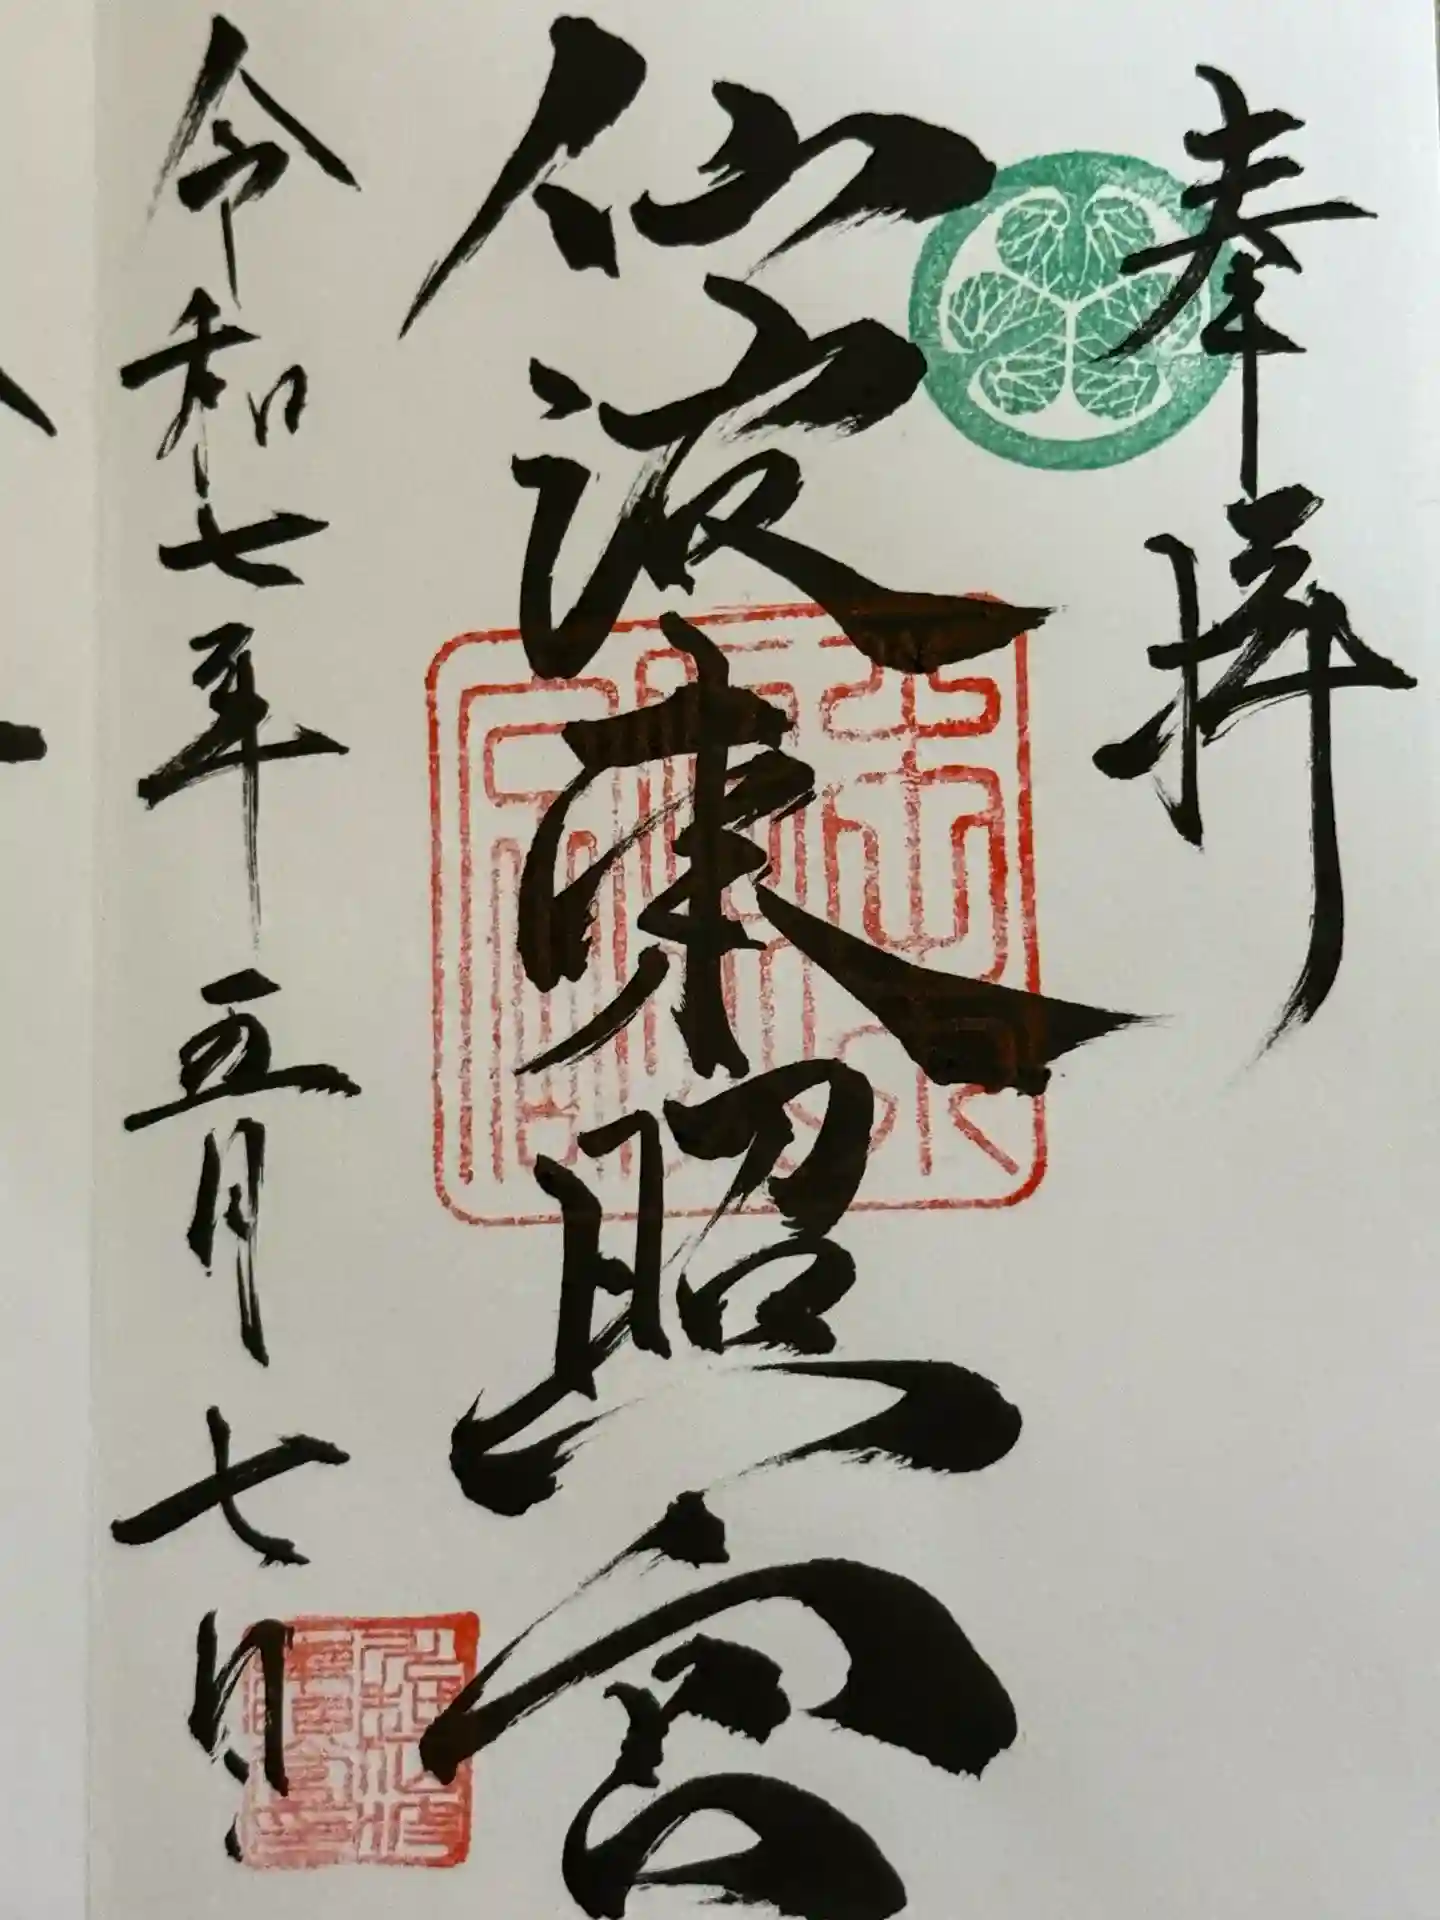 奉拝
仙波東照宮
令和七年五月七日